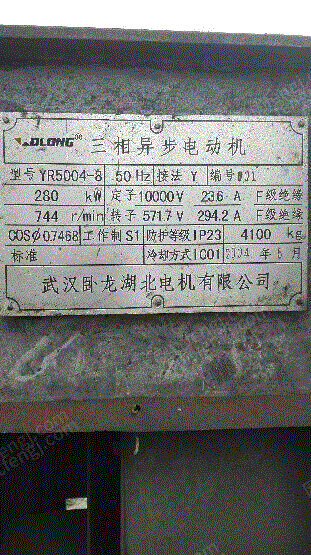 WOLONG® 三相异步电动机
型号 YR5004-8 50 Hz 接法 Y 编号
280 kW 定子 10000 V 23.6 A F级绝缘
744 r/min 转子 571.7 V 294.2 A F级绝缘
COSφ 0.7468 工作制 S1 防护等级 IP23 4100 kg
标准 冷却方式 IC01 2004 年 5 月
武汉卧龙湖北电机有限公司